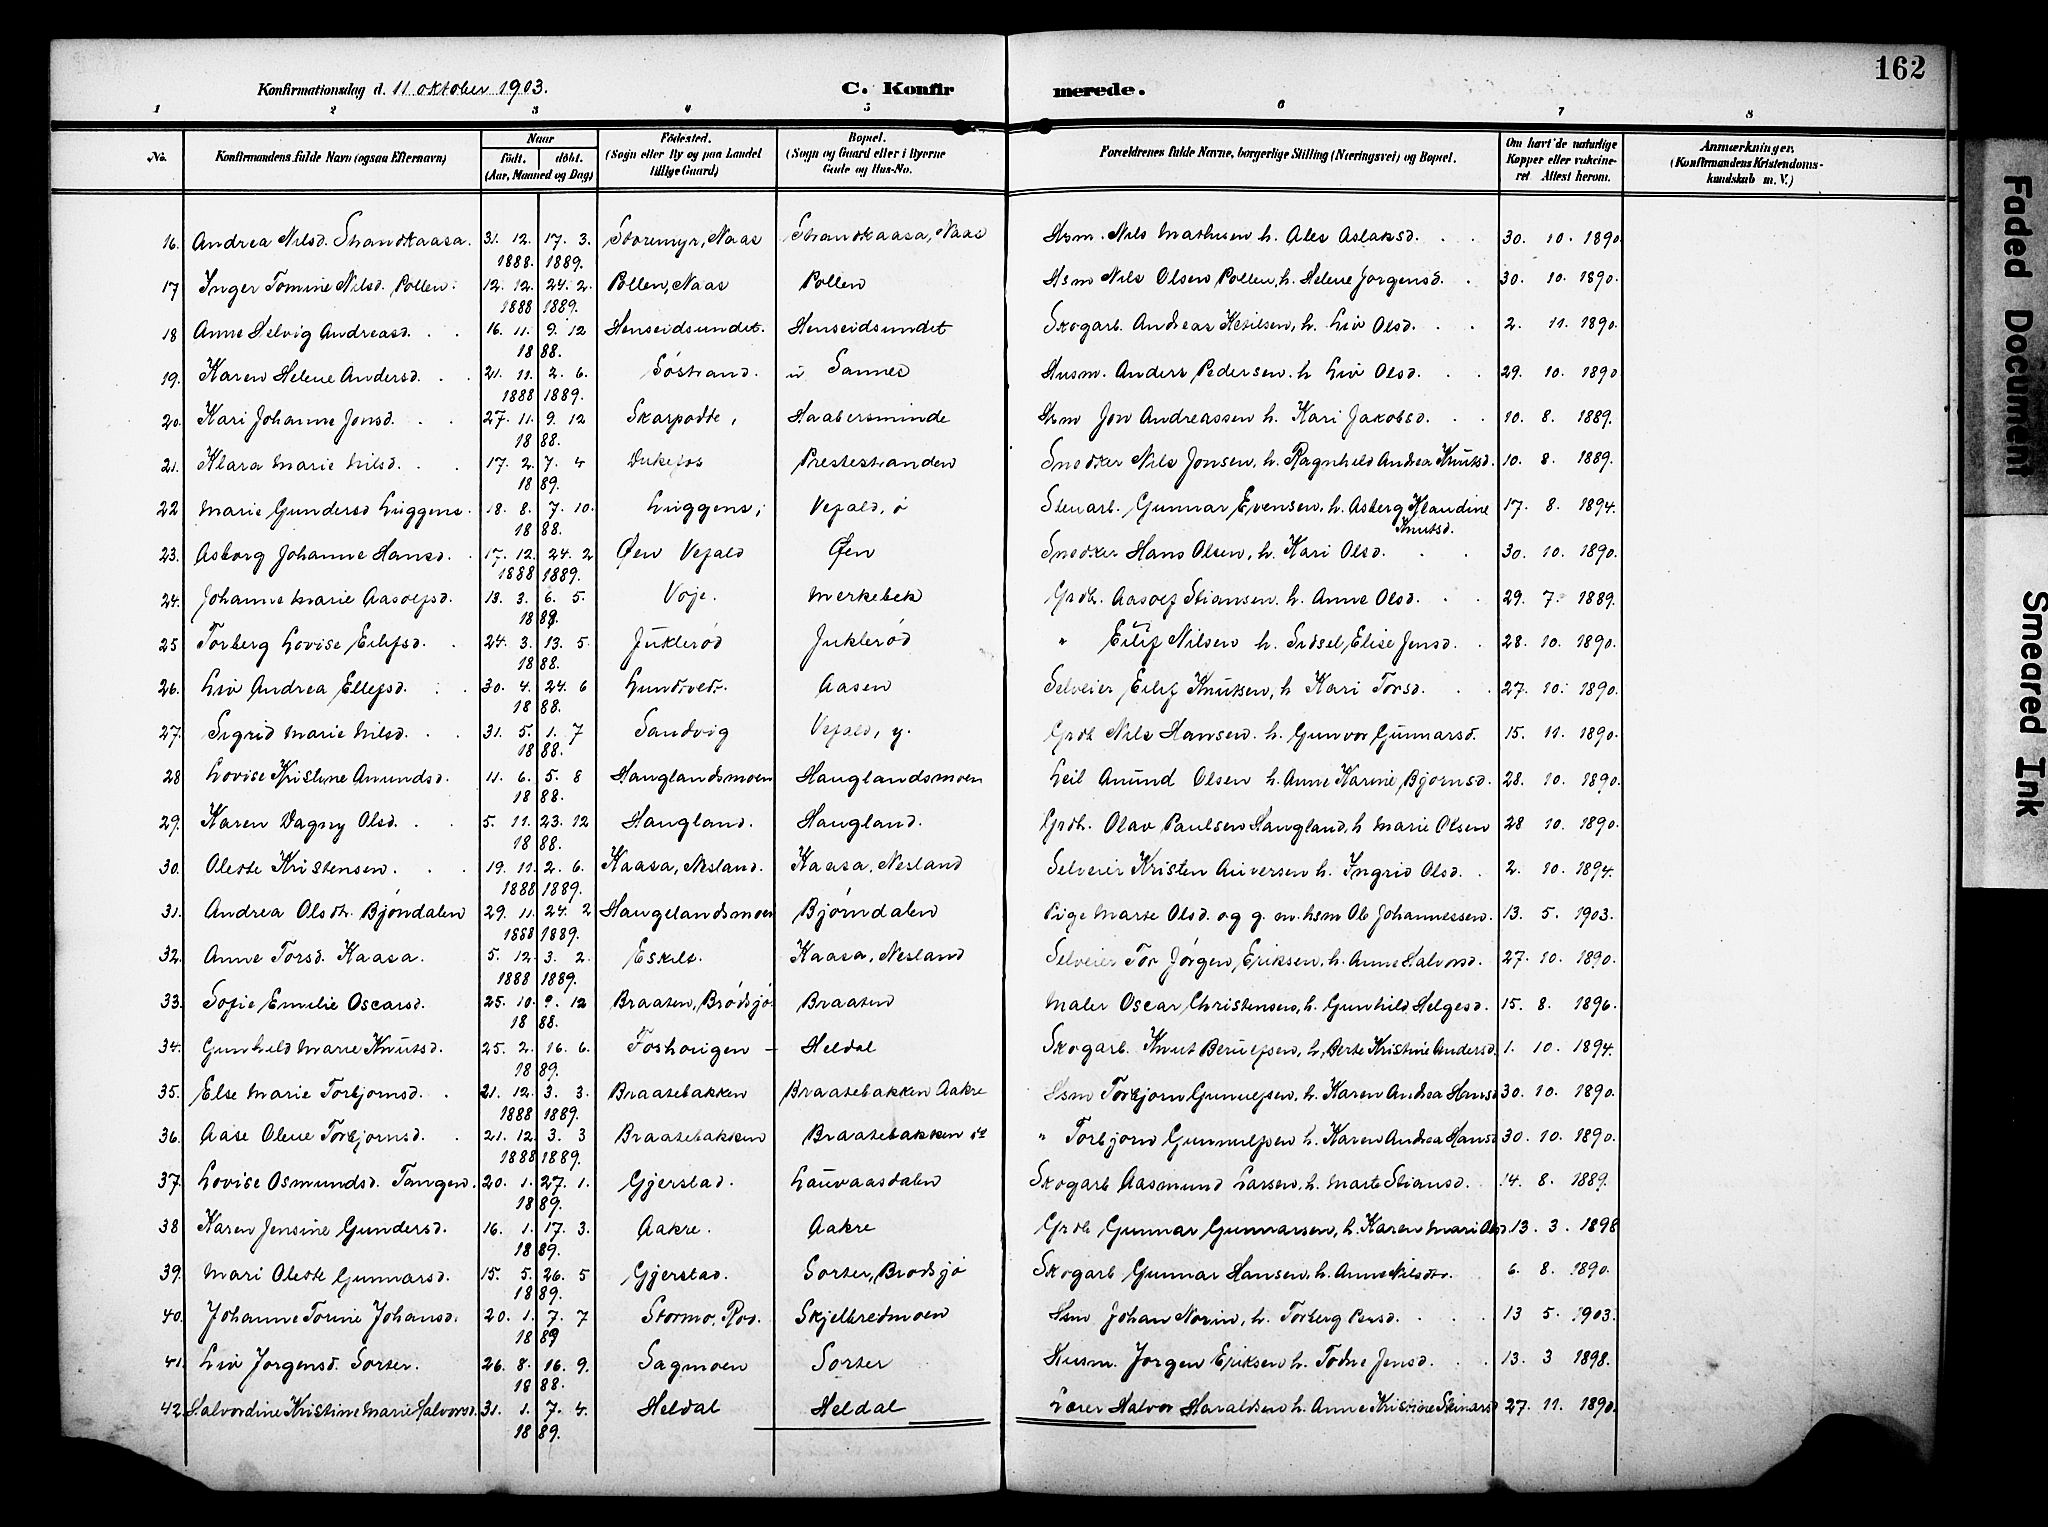 162
Konfirmationsdag d. 11 oktober 1903. C. Konfirmerede.
1 2 3 4 5 6 7 8
No. Konfirmandens fulde Navn (ogsaa Efternavn) Naar født. døbt. (Aar, Maaned og Dag) Fødested. (Sogn eller By og paa Landet tillige Gaard) Bopæl. (Sogn og Gaard eller i Byerne Gade og Hus-No. Forældrenes fulde Navne, borgerlige Stilling (Næringsvei) og Bopæl. Om havt de naturlige Kopper eller vakcineret Attest herom. Anmærkninger. (Konfirmandens Kristendomskundskab m. V.)
16. Andrea Nilsd. Strandkaasa. 31. 12. 1888. 17. 3. 1889. Storemyr, Naas Strandkaasa, Naas Hsm. Nils Mathisen h. Ales Aslaksd. 30. 10. 1890.
17 Inger Tomine Nilsd. Pollen. 12. 12. 1888 24. 2. 1889. Pollen, Naas Pollen Hsm Nils Olsen Pollen, h. Helene Jorgensd. 30. 10. 1890.
18 Anne Helvig Andreasd. 16. 11. 9. 12 1888. Henseidsundet. Henseidsundet Skogarb. Andreas Ketilsen, h. Liv Olsd. 2. 11. 1890.
19. Karen Helene Andersd. 21. 11. 1888 2. 6. 1889. Søstrand. Sannes Husm. Anders Pedersen. h Liv Olsd. 29. 10. 1890
20. Kari Johanne Jonsd. 27. 11. 9. 12 1888. Skarpodde, Haabersminde Hsm Jon Andreassen h. Kari Jakobsd. 10. 8. 1889.
21. Klara Marie Nilsd. 17. 2. 7. 4 1889. Dukefos Prestestranden Snedker Nils Jonsen, h. Ragnhild Andrea Knutsd. 10. 8. 1889.
22 Marie Gundersd Luggens. 18. 8. 7. 10. 1888. Luggens, Vefald, ø Stenarb. Gunnar Evensen, h. Asberg Klandine Knutsd. 17. 8. 1894.
23. Asborg Johanne Hansd. 17. 12. 1888 24. 2 1889. Øen Vefald Øen Snedker Hans Olsen, h. Kari Olsd. 30. 10. 1890.
24. Johanne Marie Aasolfsd. 13. 3. 6. 5. Voje. Merkebek Grdb. Aasolf Stiansen. h. Anne Olsd. 29. 7. 1889.
25 Torberg Lovise Eilifsd. 24. 3. 13. 5. 1888. Juklerød Juklerød " Eilif Nilsen h. Sidsel Elise Jensd. 28. 10. 1890.
26. Liv Andrea Ellefsd. 30. 4. 24. 6 1888. Lundsvedr. Aasen Selveier Eilif Knutsen, h Kari Torsd. 27. 10. 1890.
27. Sigrid Marie Nilsd. 31. 5. 1. 7 1888. Sandvig Vefald, y. Grdb Nils Hansen. h. Gunvor Gunnarsd. 15. 11. 1890.
28 Lovise Kristine Amundsd. 11. 6. 5. 8 1888. Hauglandsmoen Hauglandsmoen Leil Amund Olsen h. Anne Karine Bjornsd. 28. 10. 1890.
29. Karen Dagny Olsd. 5. 11. 23. 12 1888. Haugland. Haugland. Grdb. Olav Paulsen Haugland, h Marie Olsen 28 10. 1890.
30. Oleste Kristensen. 19. 11. 1888 2. 6. 1889. Kaasa, Nesland. Kaasa, Nesland Selveier Kristen Auversen h. Ingrid Olsd. 2. 10. 1894.
31. Andrea Olsdtr. Bjøndalen 29. 11. 1888 24. 2 1889. Haugelandsmoen Bjørndalen Pige Marte Olsd. og g. m. hsm Ole Johannessen. 13. 5. 1903.
32. Anne Torsd. Kaasa. 5. 12. 1888 3. 2. 1889. Eskils. Kaasa, Nesland Selveier Tor Jørgen Eriksen, h. Anne Halvorsd. 27. 10. 1890.
33. Sofie Emilie Oscarsd. 25. 10. 9. 12 1888. Braaten, Brødsjø Braaten Maler Oscar Christensen, h. Gunhild Helgesd. 15. 8. 1896.
34. Gunhild Marie Knutsd. 25. 2. 16. 6. 1889. Foshougen - Heldal Skogarb. Knut Berulfsen, h. Berte Kristine Andersd. 1. 10. 1894.
35. Else Marie Torbjornsd. 21. 12. 1888 3. 3. 1889. Braatebakken Braatebakken Aakre Hsm Torbjorn Gunnulfsen, h. Karen Andrea Hansd 30. 10. 1890.
36. Aase Olene Torbjornsd. 21. 12. 1888 3. 3 1889. Braatebakken Braatebakken " Torbjorn Gunnulfsen h. Karen Andrea Hansd 30. 10. 1890.
37. Lovise Osmundsd. Tangen. 20. 1. 27. 1. 1889. Gjerstad. Lauvaasdalen Skogarb Aasmund Larsen, h. Marte Stiansd. 14. 8. 1889.
38 Karen Jensine Gundersd. 16. 1. 17. 3. 1889. Aakre. Aakre Grdb Gunnar Gunnarsen, h. Karen Mari Olsd 13. 3. 1898
39. Mari Oleste Gunnarsd. 15. 5. 26. 5 1889. Gjerstad. Sorter, Brodsjø Skogarb Gunnar Hansen, h. Anne Nilsdtr. 6. 8. 1890.
40. Johanne Torine Johansd. 20. 1. 7. 7 1889 Stormo, Rod. Skjelbredmoen Hsm Johan Norin, h. Torberg Persd. 13 5. 1903.
41. Liv Jorgensd. Sorter. 26. 8. 16. 9. 1888. Sagmoen Sorter Husm. Jorgen Eriksen h. Todne Jensd. 13. 3 1898.
42. Halvordine Kristine Marie Halvorsd. 31. 1. 7. 4. 1889. Heldal Heldal Lærer Halvor Haraldsen h. Anne Kristine Steinarsd 27. 11. 1890.
Faded Document
Smeared Ink